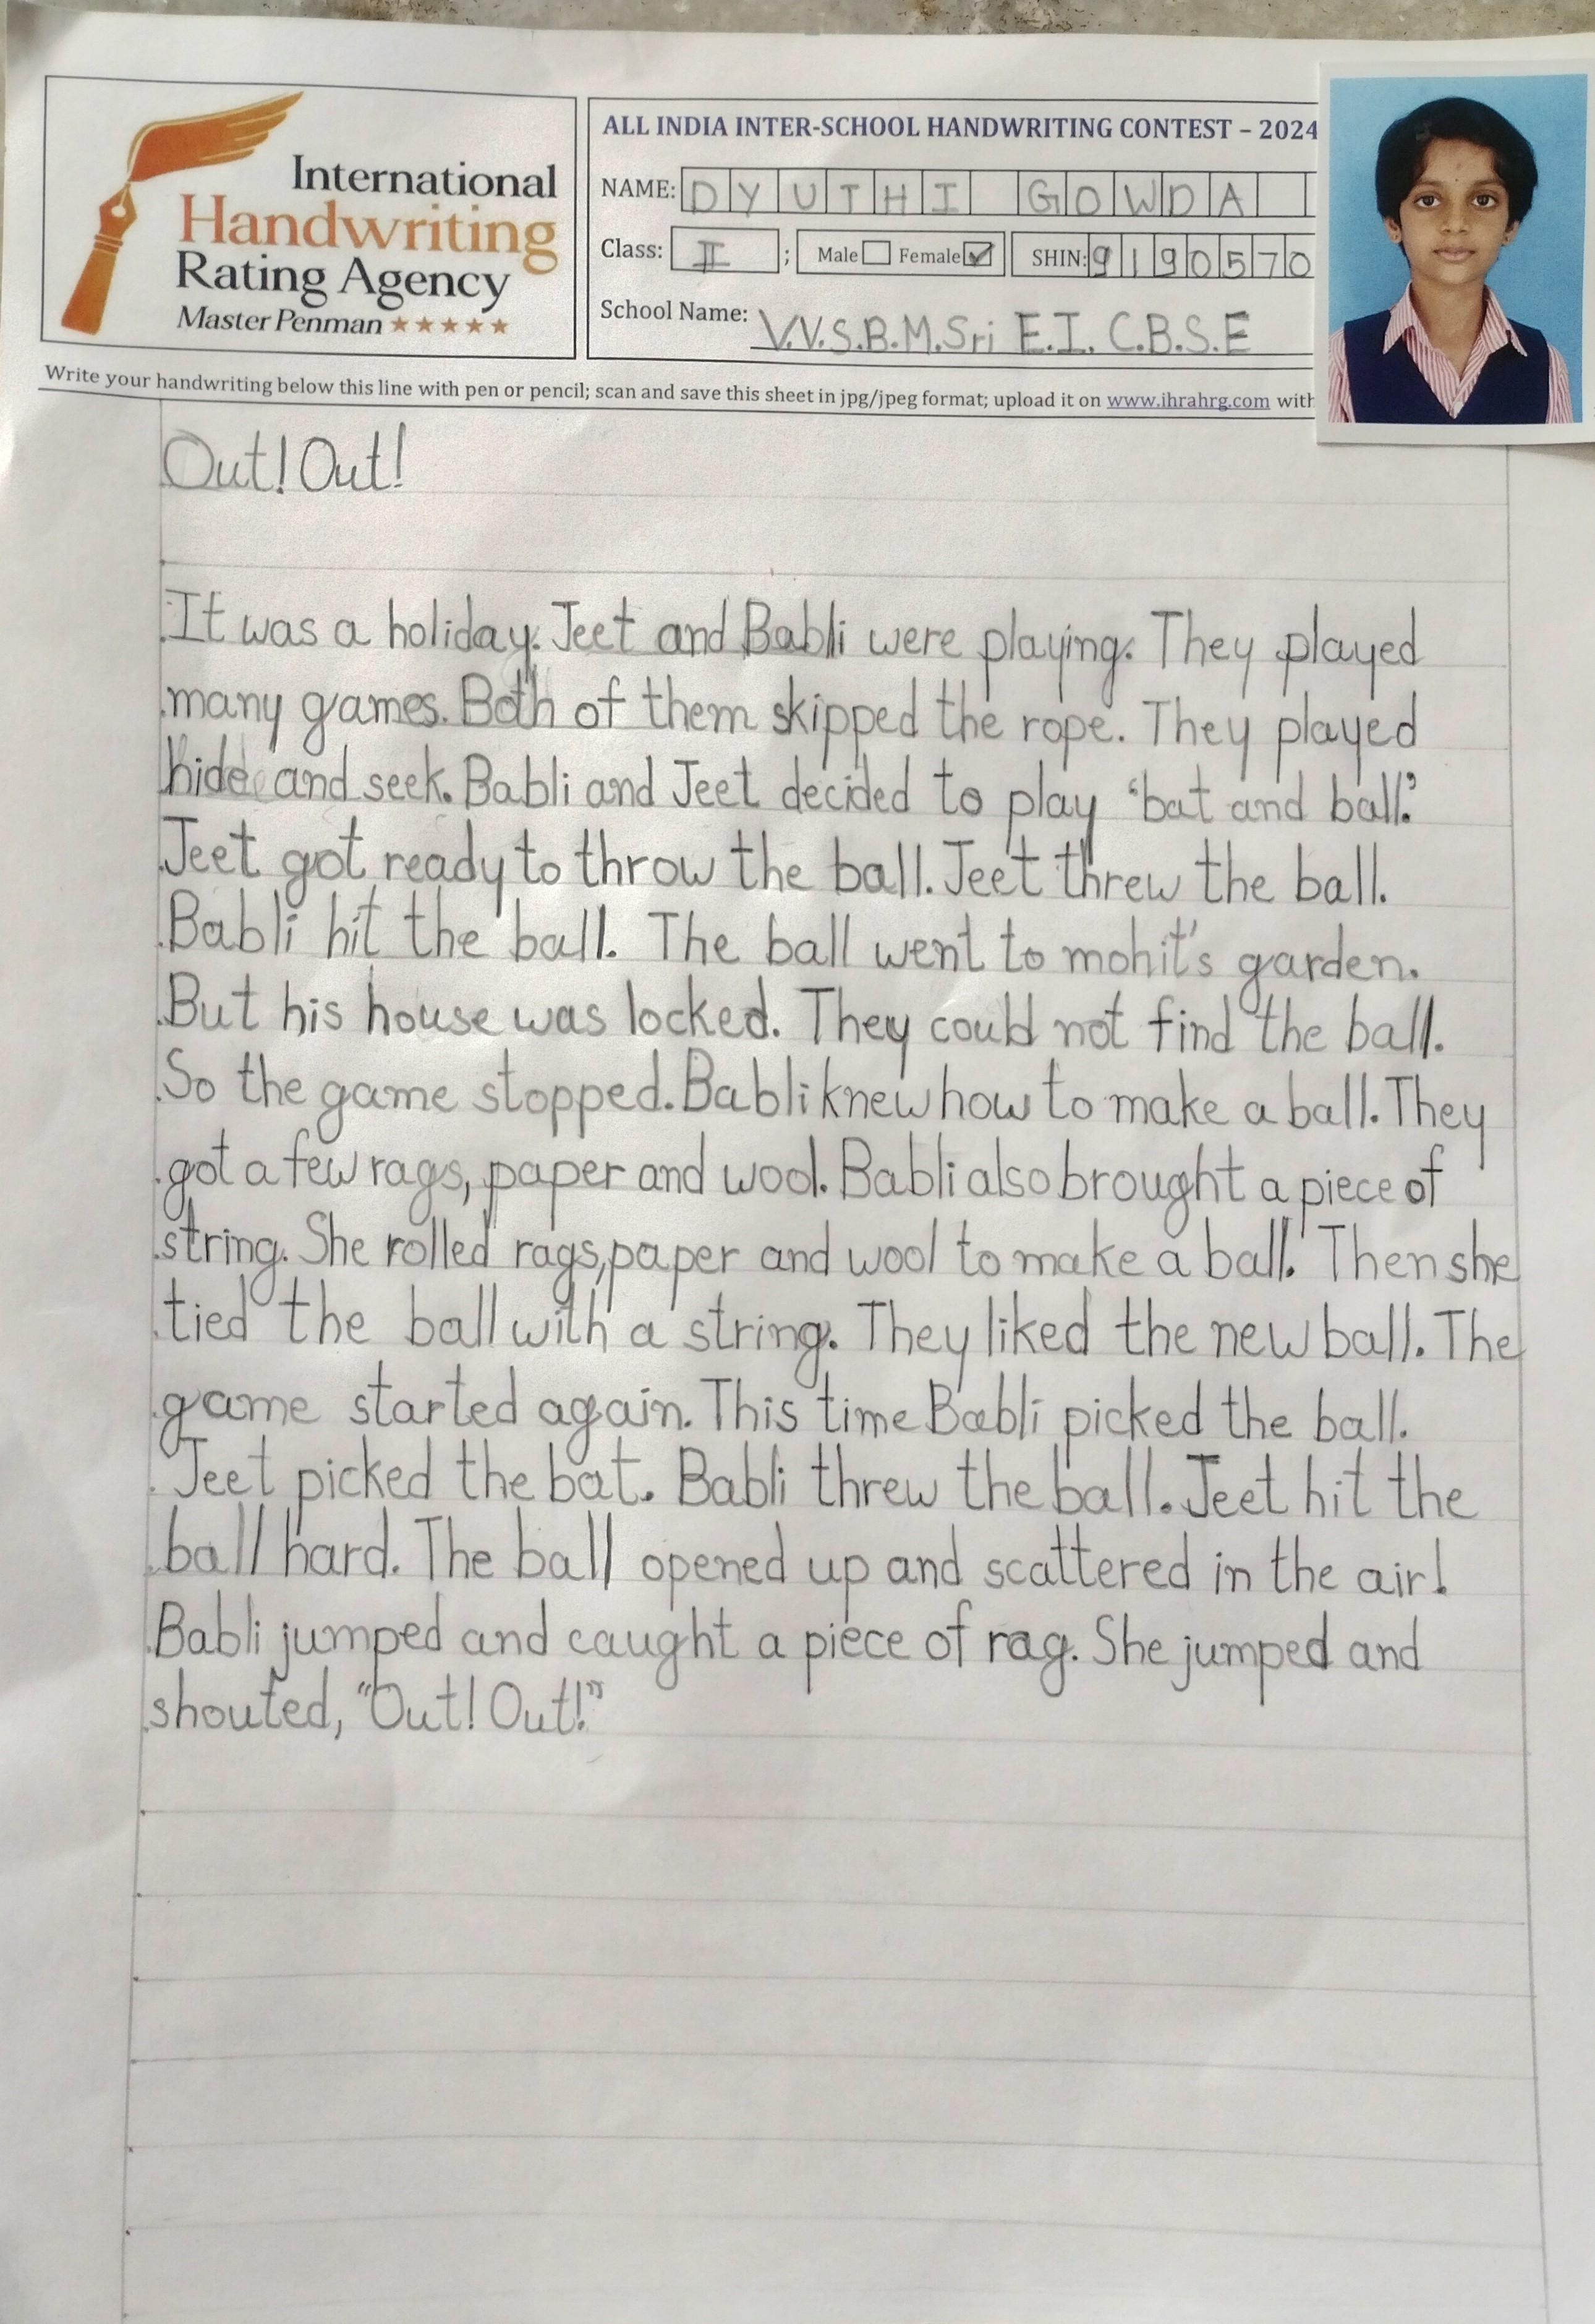 International
Handwriting
Rating Agency
Master Penman
ALL INDIA INTER-SCHOOL HANDWRITING CONTEST – 2024
NAME: DYUTHI GOWDA
Class: II ; Male Female ✓ SHIN: 9190570
School Name: V.V.S.B.M.Sri E.I. C.B.S.E
Write your handwriting below this line with pen or pencil; scan and save this sheet in jpg/jpeg format; upload it on www.ihrahrg.com with
Out! Out!
It was a holiday. Jeet and Babli were playing. They played
many games. Both of them skipped the rope. They played
hide and seek. Babli and Jeet decided to play 'bat and ball.'
Jeet got ready to throw the ball. Jeet threw the ball.
Babli hit the ball. The ball went to mohit's garden.
But his house was locked. They could not find the ball.
So the game stopped. Babli knew how to make a ball. They
got a few rags, paper and wool. Babli also brought a piece of
string. She rolled rags, paper and wool to make a ball. Then she
tied the ball with a string. They liked the new ball. The
game started again. This time Babli picked the ball.
Jeet picked the bat. Babli threw the ball. Jeet hit the
ball hard. The ball opened up and scattered in the air!
Babli jumped and caught a piece of rag. She jumped and
shouted, "Out! Out!"